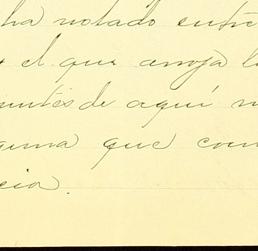 ha notado entre
el que arroja l
de aquí n
guna que con
cia.